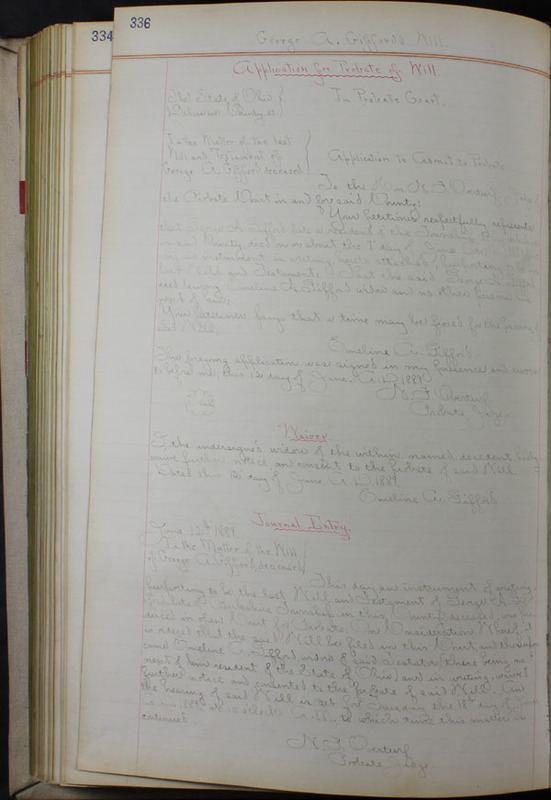 334
336
George A. Gifford's Will.
Application for Probate of Will.
The State of Ohio
Delaware County, ss.
In Probate Court.
In the Matter of the last
Will and Testament of
George A. Gifford, deceased
Application to Admit to Probate
To the Hon. N. F. Overturf, Judge
the Probate Court in and for said County:
Your Petitioner respectfully represents
that George A. Gifford late a resident of the Township
in said County, died on or about the day of June
an instrument in writing, hereto attached, purporting to be
last Will and Testament; That the said George A. Gifford
died leaving Emeline A. Gifford widow and no other
next of kin;
Your petitioner prays that a time may be fixed for the proving
said Will.
Emeline A. Gifford
The foregoing application was signed in my presence and sworn
to before me, this 12 day of June, A.D. 1889.
N. F. Overturf
Probate Judge.
Waiver
I, the undersigned widow of the within named decedent, hereby
waive further notice, and consent to the probate of said Will
Dated this 12 day of June A.D. 1889
Emeline A. Gifford
Journal Entry.
June 12th 1889.
In the Matter of the Will
of George A. Gifford, deceased
This day an instrument of writing,
purporting to be the last Will and Testament of George A.
late of Berkshire Township in this County, deceased, was
duced in open Court for Probate. On Consideration Whereof, it
is ordered that the said Will be filed in this Court, and thereupon
came Emeline A. Gifford widow of said Testator (there being no
next of kin resident of the State of Ohio) and in writing, waived
further notice and consented to the probate of said Will. And
the hearing of said Will is set for Tuesday the 18th day of June
A.D. 1889 at 10 o'clock A.M., to which time this matter is
continued
N. F. Overturf
Probate Judge